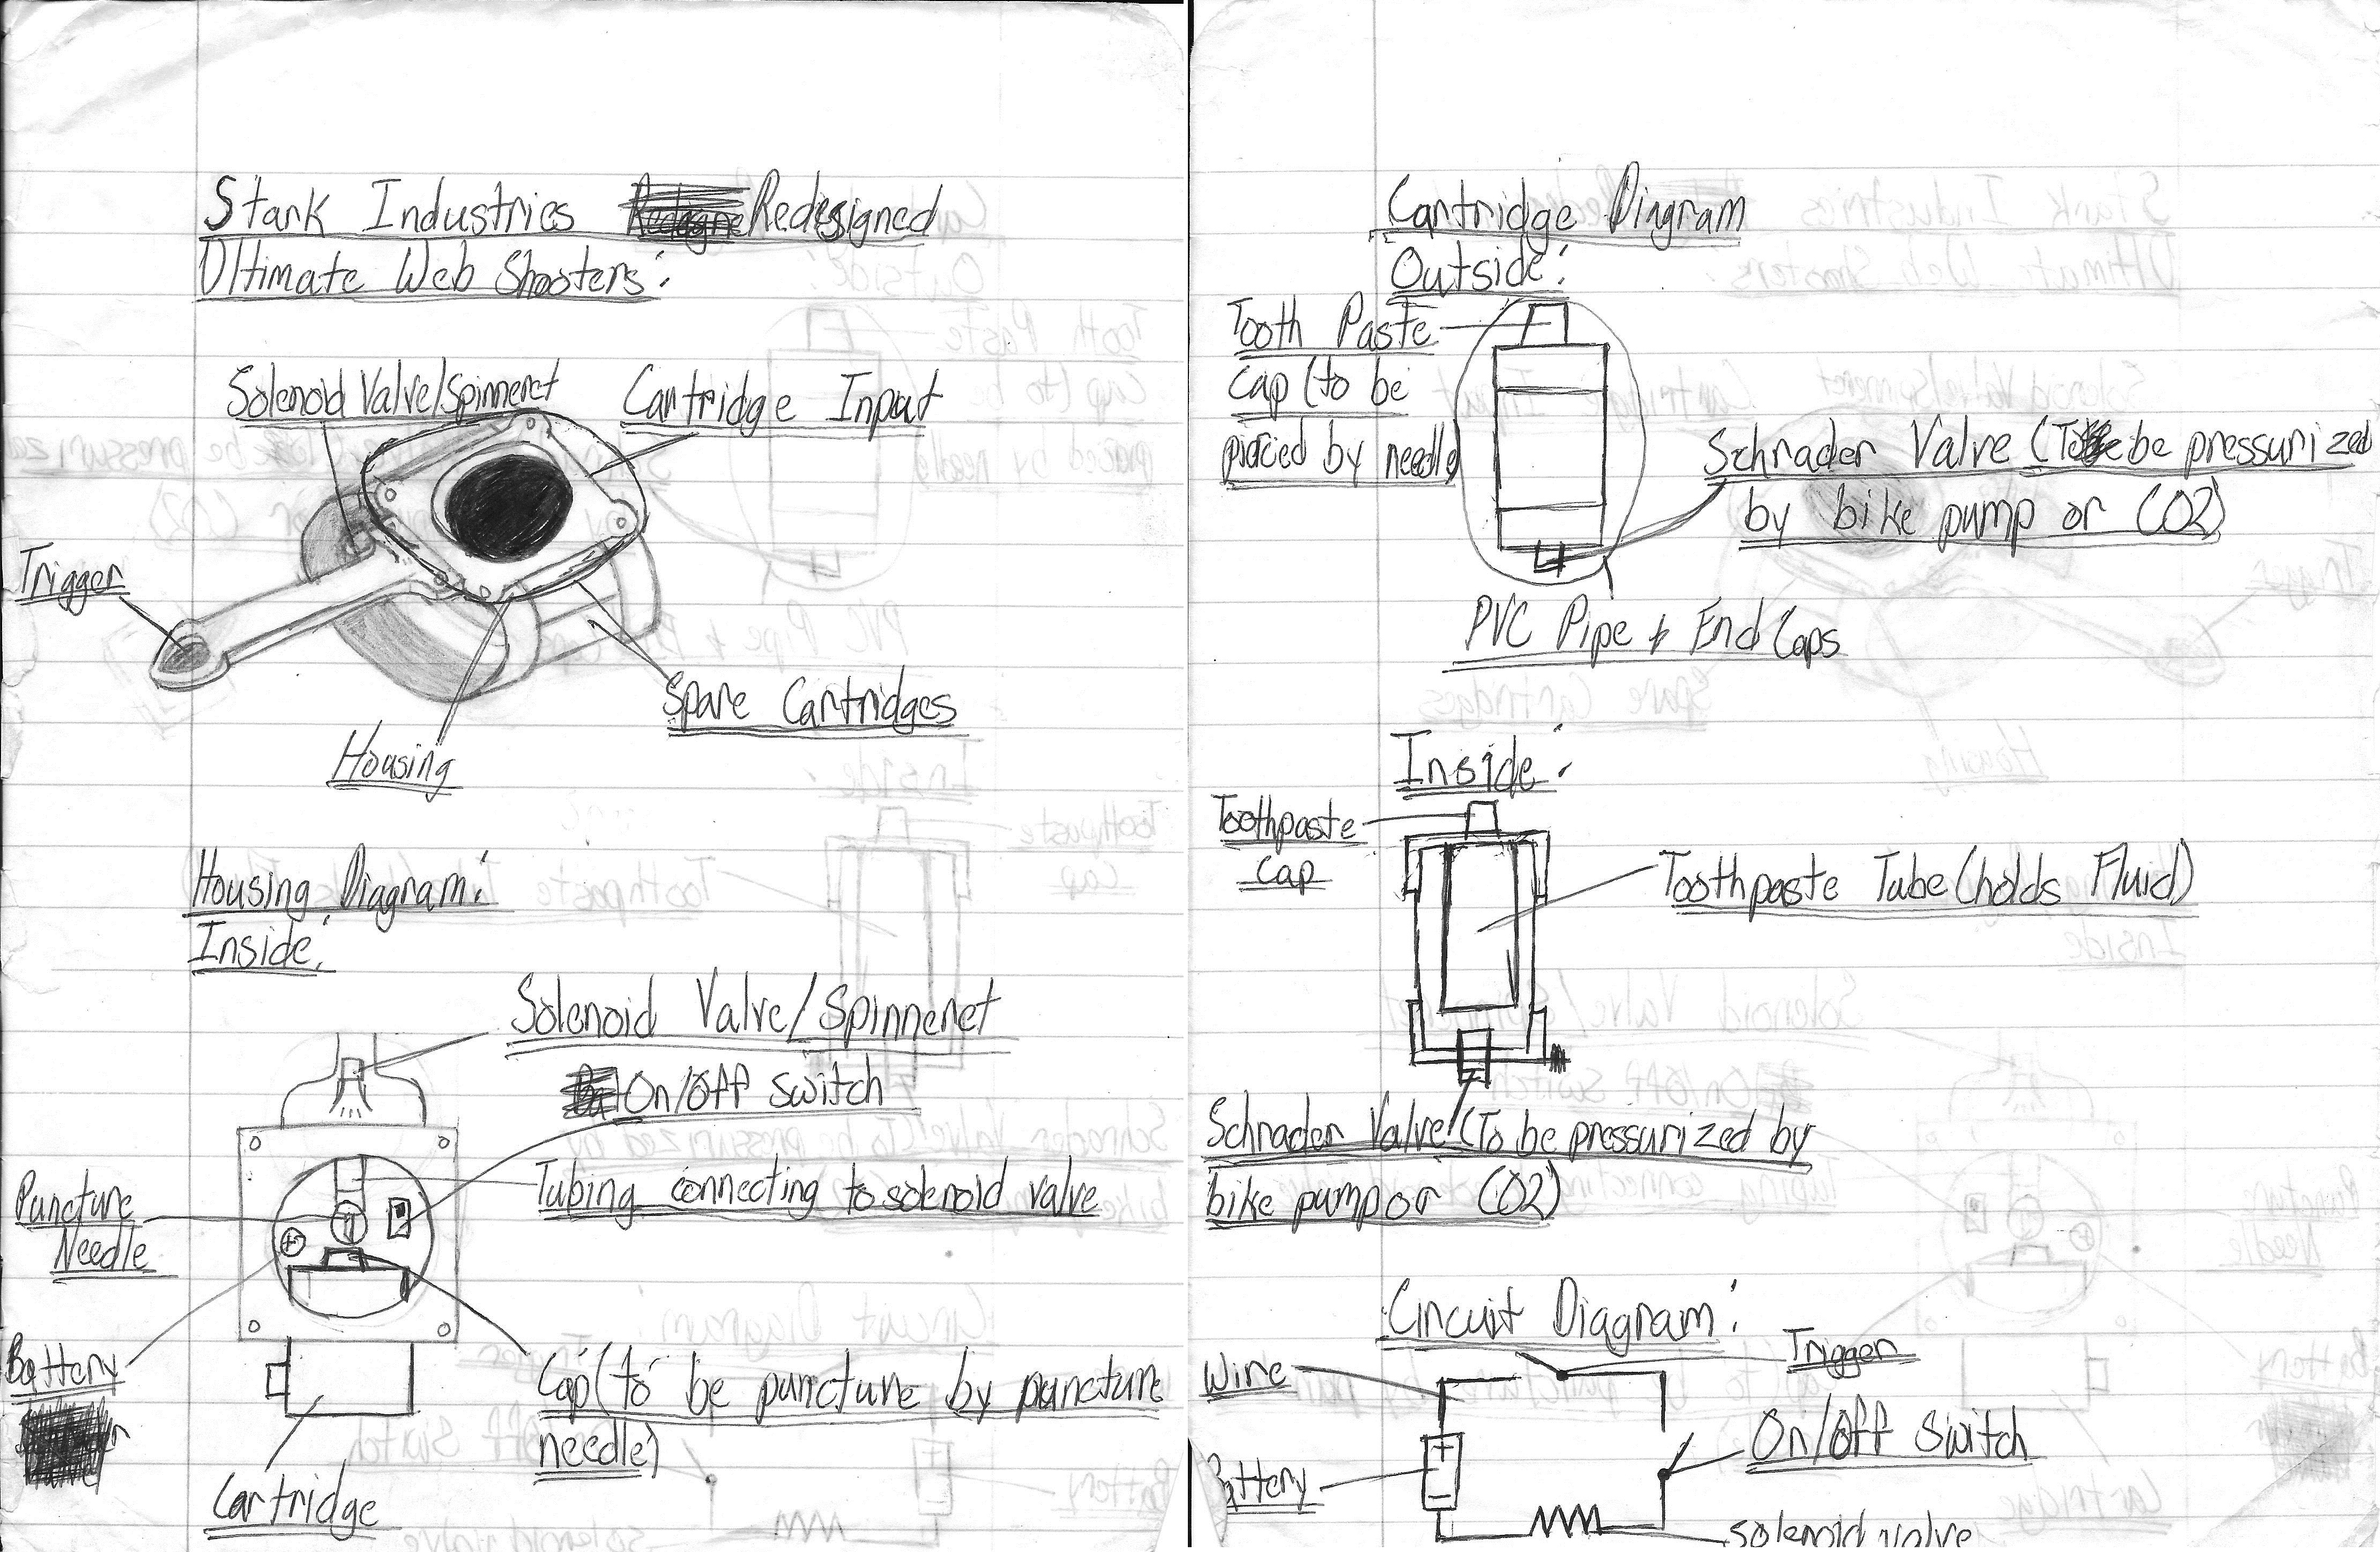 Stark Industries Redesigned
Ultimate Web Shooters:
Solenoid Valve/Spinneret
Cartridge Input
Trigger
Spare Cartridges
Housing
Housing Diagram:
Inside:
Solenoid Valve/Spinneret
On/Off switch
Tubing connecting to solenoid valve
Puncture
Needle
Battery
Cap (to be puncture by puncture
needle)
Cartridge
Cartridge Diagram
Outside:
Tooth Paste
Cap (to be
pierced by needle
Schrader Valve (To be pressurized
by bike pump or CO2)
PVC Pipe & End Caps
Inside:
Toothpaste
Cap
Toothpaste Tube (holds Fluid)
Schrader Valve (To be pressurized by
bike pump or CO2)
Circuit Diagram:
Trigger
Wire
On/Off Switch
Battery
solenoid valve